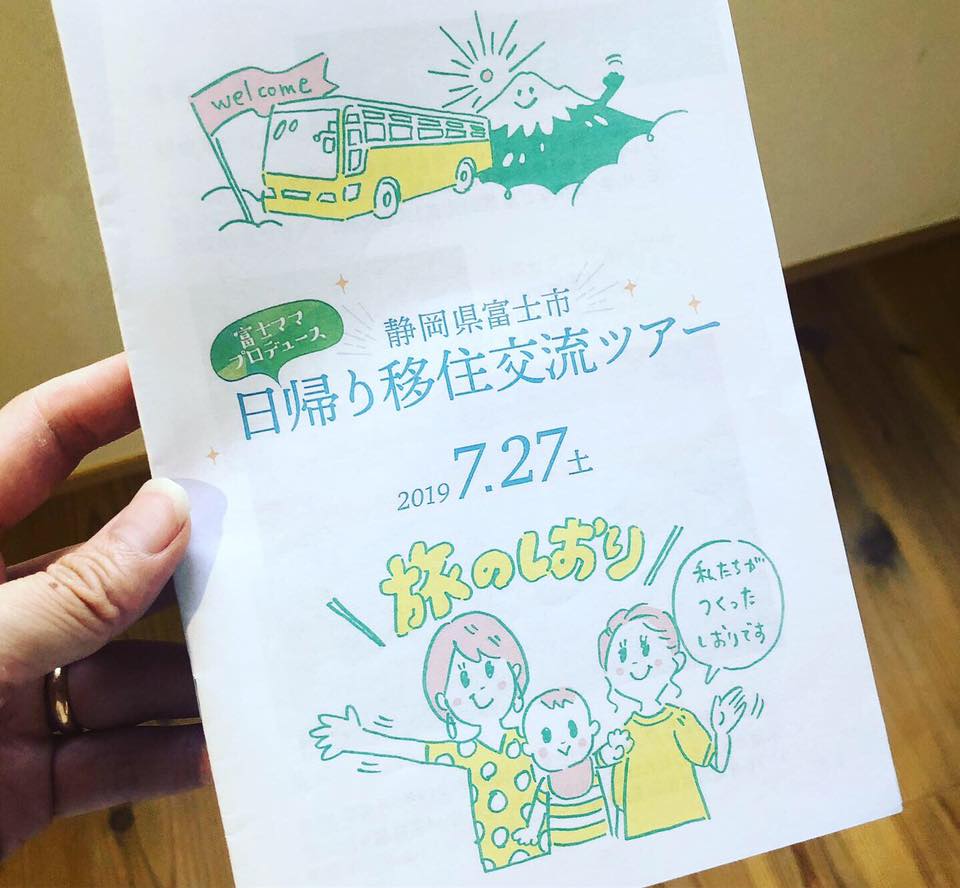 welcome
富士ママ
プロデュース
静岡県富士市
日帰り移住交流ツアー
2019 7.27 土
旅のしおり
私たちが
つくった
しおりです